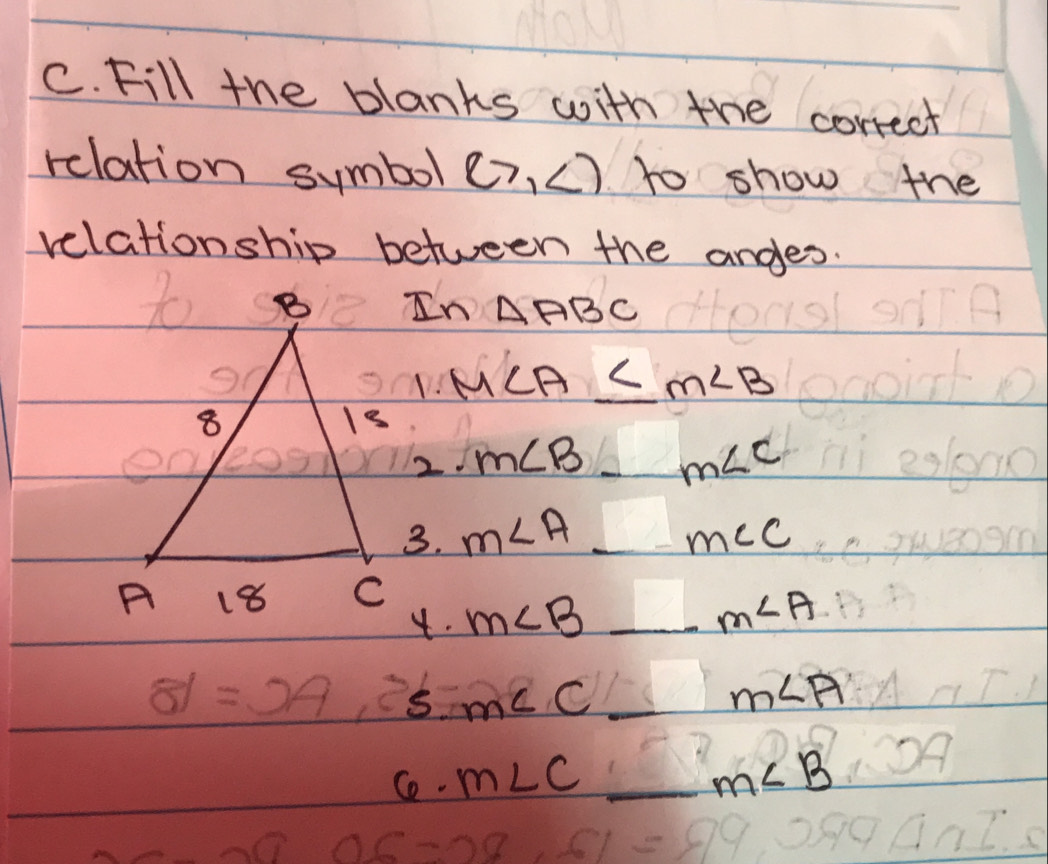 C. Fill the blanks with the correct
relation symbol (>,<) to show the
relationship between the angles.
B In △ABC
1. M∠A < m∠B
8 15
2. m∠B _ m∠C
3. m∠A _ m∠C
A 18 C
4. m∠B __ m∠A
5. m∠C _ m∠A
6. m∠C __ m∠B